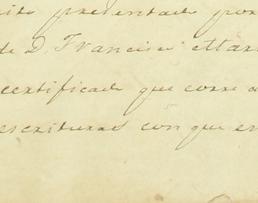 presentado por
de D. Francisco Mar
certificado que corre a
escrituras con que en